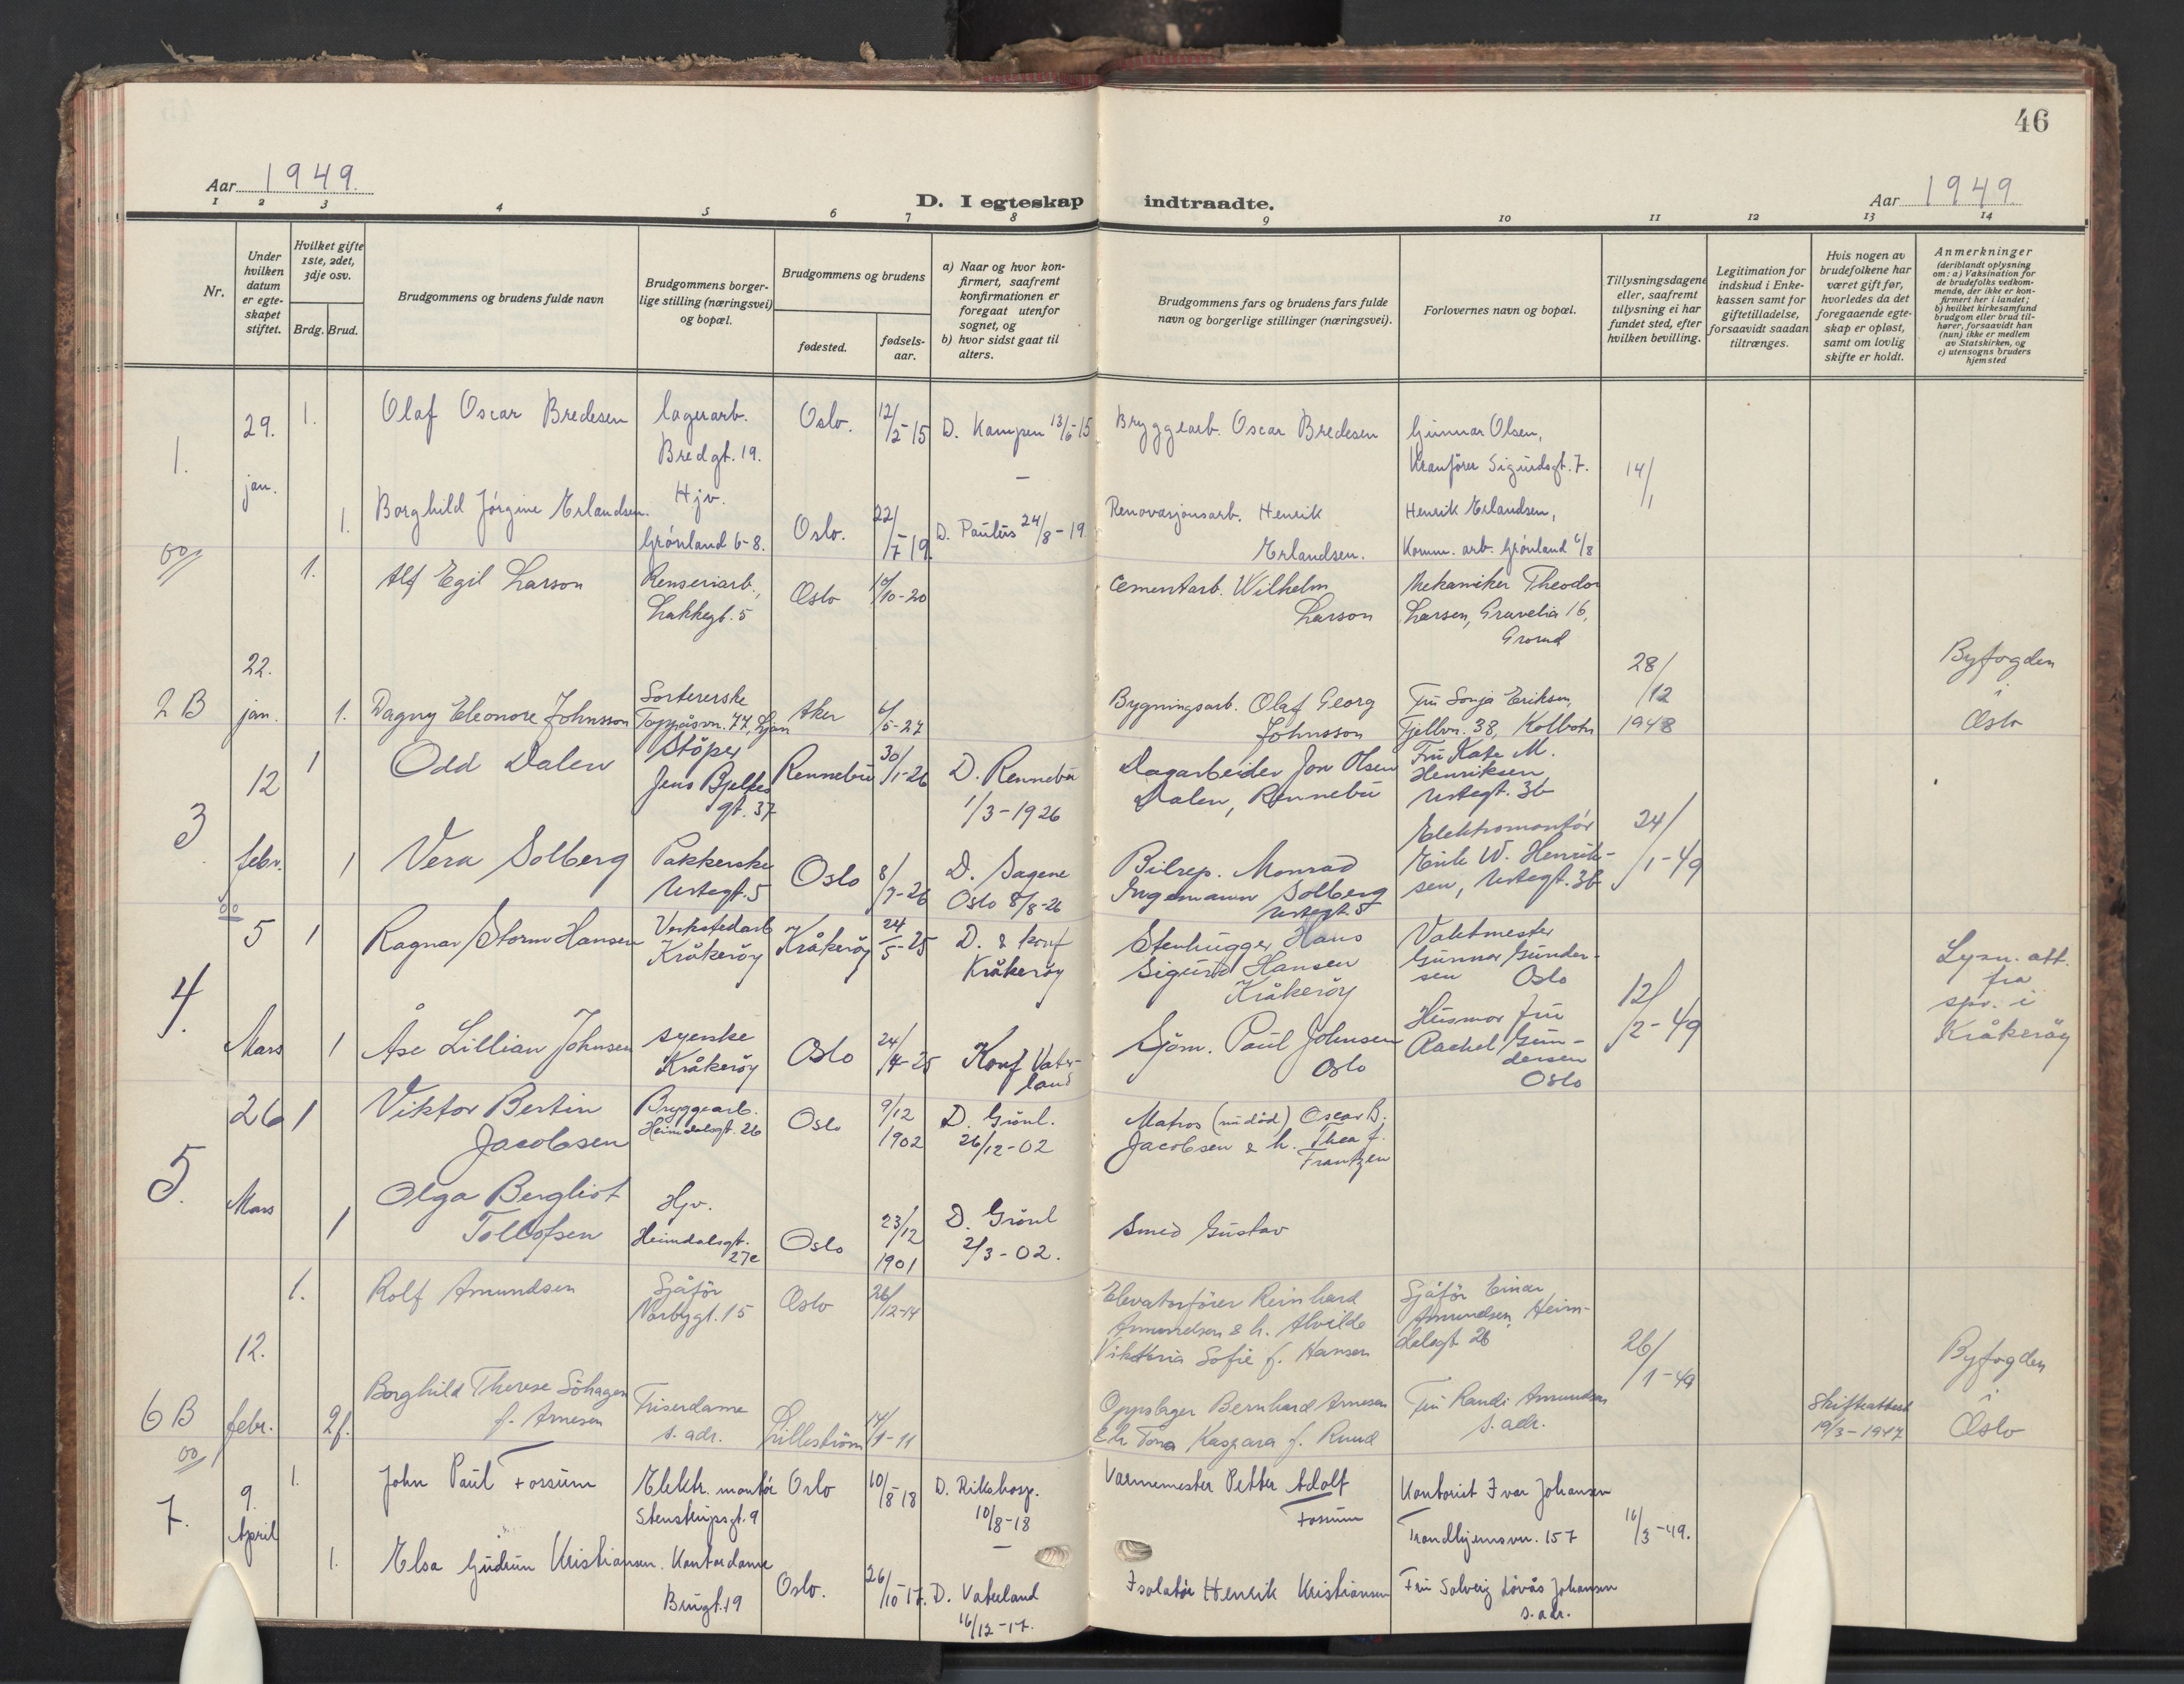 46
Aar 1949.
D. I egteskap indtraadte.
Aar 1949.
1 2 3 4 5 6 7 8 9 10 11 12 13 14
Nr.
Under hvilken datum er egteskapet stiftet.
Hvilket gifte 1ste, 2det, 3dje osv.
Brdg. Brud.
Brudgommens og brudens fulde navn
Brudgommens borgerlige stilling (næringsvei) og bopæl.
Brudgommens og brudens
fødested.
fødselsaar.
a) Naar og hvor konfirmert, saafremt konfirmationen er foregaat utenfor sognet, og
b) hvor sidst gaat til alters.
Brudgommens fars og brudens fars fulde navn og borgerlige stillinger (næringsvei).
Forlovernes navn og bopæl.
Tillysningsdagene eller, saafremt tillysning ei har fundet sted, efter hvilken bevilling.
Legitimation for indskud i Enkekassen samt for giftetilladelse, forsaavidt saadan tiltrænges.
Hvis nogen av brudefolkene har været gift før, hvorledes da det foregaaende egteskap er opløst, samt om lovlig skifte er holdt.
Anmerkninger (deriblandt oplysning om: a) Vaksination for de brudefolks vedkommende, der ikke er konfirmert her i landet; b) hvilket kirkesamfund brudgom eller brud tilhører, forsaavidt han (hun) ikke er medlem av Statskirken, og c) utensogns bruders hjemsted
1. 29. jan. 1. Olaf Oscar Bredesen lagerarb. Bredgt. 19. Oslo. 12/2-15 D. Kampen 13/6-15 Bryggearb. Oscar Bredesen Gunnar Olsen, Kranfører Sigurdsgt. 7. 14/1
1. Borghild Jørgine Erlandsen. Hjv. Grønland 6-8. Oslo. 22/7-19. D. Paulus 24/8-19 Renovasjonsarb. Henrik Erlandsen. Henrik Erlandsen, Komm. arb. Grønland 6/8
2 B 22. jan. 1. Alf Egil Larson Renseriarb., Lakkegt. 5 Oslo /10-20 Cementarb. Wilhelm Larson Mekaniker Theodor Larsen, Gravelia 16, Grorud 28/12 1948 Byfogden i Oslo
1. Dagny Eleonore Johnsson Sortererske Toppåsvn. 77, Ljan Aker 6/5-27 Bygningsarb. Olaf Georg Johnsson Fru Sonja Eriksen, Fjellvn. 38, Kolbotn
3 12 febr. 1 Odd Dalen Støper Jens Bjelkes gt. 37 Rennebu 30/1-26 D. Rennebu 1/3-1926 Dagarbeider Jon Olsen Dalen, Rennebu Fru Kate M. Henriksen, Urtegt. 3b 24/1-49
1 Vera Solberg Pakkerske Urtegt. 5 Oslo 8/7-26 D. Sagene Oslo 8/8-26 Bilrep. Monrad Ingemann Solberg Urtegt. 5 Elektromontør Erik W. Henriksen, Urtegt. 3b
4. 5 Mars 1 Ragnar Storm Hansen Verkstedarb Kråkerøy Kråkerøy 24/5-25 D. & konf Kråkerøy Stenhugger Hans Sigurd Hansen Kråkerøy Vaktmester Gunnar Gundersen Oslo 12/2-49 Lysn. att. fra spr. i Kråkerøy
1 Åse Lillian Johnsen syerske Kråkerøy Oslo 24/4-25 Konf Vaterland Sjøm. Paul Johnsen Oslo Husmor fru Rachel Gundersen Oslo
5. 26 Mars 1 Viktor Bertin Jacobsen Bryggearb. Heimdalsgt. 26 Oslo 9/12 1902 D. Grønl. 26/12-02 Matros (nu død) Oscar B. Jacobsen & h. Thea f. Frantzen
1 Olga Bergliot Tollofsen Hjv. Heimdalsgt. 27c Oslo 23/12 1901 D. Grønl 2/3-02. Smed Gustav
6 B 12. febr. 1. Rolf Amundsen Sjåfør Norbygt. 15 Oslo 26/12-14 Elevatorfører Reinhard Amundsen & h. Alvilde Viktoria Sofie f. Hansen Sjåfør Einar Amundsen, Heimdalsgt 26 26/1-49 Byfogden i Oslo
2 f. Borghild Therese Söhagen f. Arnesen Friserdame s. adr. Lillestrøm 14/1-11 Oppslager Bernhard Arnesen & h. Tora Kaspara f. Ruud Fru Randi Amundsen s. adr. Skifteattest 19/3-1947
7. 9. April 1. John Paul Fossum Elektr. montør Stenstrupsgt. 9 Oslo 10/8-18 D. Rikshosp. 10/8-18 Varmemester Petter Adolf Fossum Kontorist Ivar Johansen Trondhjemsvn. 157 16/3-49.
1. Elsa Gudrun Kristiansen. Kontordame Brugt. 19 Oslo. 26/10-17. D. Vaterland 16/12-17. Isolatør Henrik Kristiansen Fru Solveig Løvås Johansen s. adr.